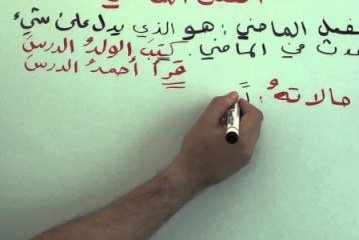 الفعل الماضي
الفعل الماضي : هو الذي يدل على شيء
حدث في الماضي. كتبَ الولدُ الدرسَ
قرأ أحمدُ الدرسَ
حالاتهُ : أَ